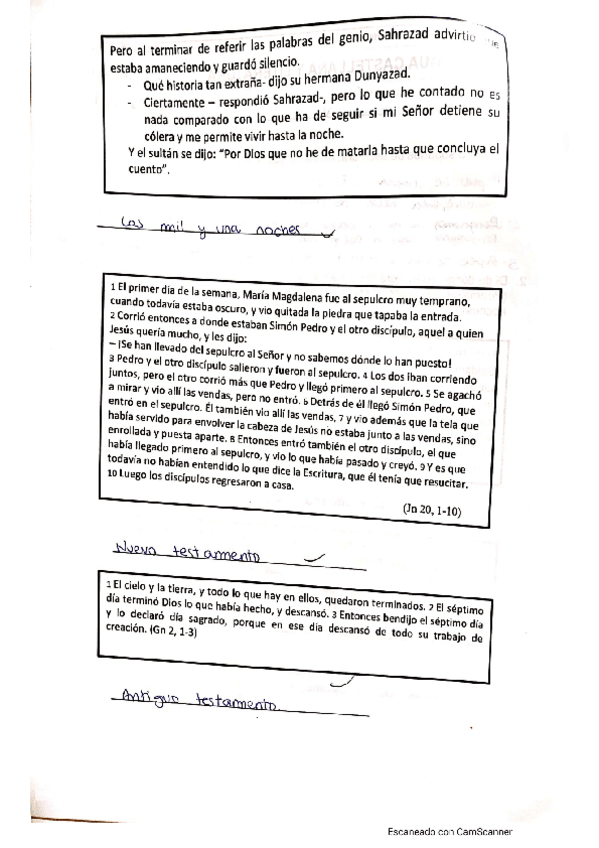 Pero al terminar de referir las palabras del genio, Sahrazad advirtió
estaba amaneciendo y guardó silencio.
- Qué historia tan extraña- dijo su hermana Dunyazad.
- Ciertamente – respondió Sahrazad-, pero lo que he contado no es
nada comparado con lo que ha de seguir si mi Señor detiene su
cólera y me permite vivir hasta la noche.
Y el sultán se dijo: "Por Dios que no he de matarla hasta que concluya el
cuento".
Las mil y una noches
1 El primer día de la semana, María Magdalena fue al sepulcro muy temprano,
cuando todavía estaba oscuro, y vio quitada la piedra que tapaba la entrada.
2 Corrió entonces a donde estaban Simón Pedro y el otro discípulo, aquel a quien
Jesús quería mucho, y les dijo:
– ¡Se han llevado del sepulcro al Señor y no sabemos dónde lo han puesto!
3 Pedro y el otro discípulo salieron y fueron al sepulcro. 4 Los dos iban corriendo
juntos, pero el otro corrió más que Pedro y llegó primero al sepulcro. 5 Se agachó
a mirar y vio allí las vendas, pero no entró. 6 Detrás de él llegó Simón Pedro, que
entró en el sepulcro. Él también vio allí las vendas, 7 y vio además que la tela que
había servido para envolver la cabeza de Jesús no estaba junto a las vendas, sino
enrollada y puesta aparte. 8 Entonces entró también el otro discípulo, el que
había llegado primero al sepulcro, y vio lo que había pasado y creyó. 9 Y es que
todavía no habían entendido lo que dice la Escritura, que él tenía que resucitar.
10 Luego los discípulos regresaron a casa.
(Jn 20, 1-10)
Nuevo testamento
1 El cielo y la tierra, y todo lo que hay en ellos, quedaron terminados. 2 El séptimo
día terminó Dios lo que había hecho, y descansó. 3 Entonces bendijo el séptimo día
y lo declaró día sagrado, porque en ese día descansó de todo su trabajo de
creación. (Gn 2, 1-3)
Antiguo testamento.
Escaneado con CamScanner